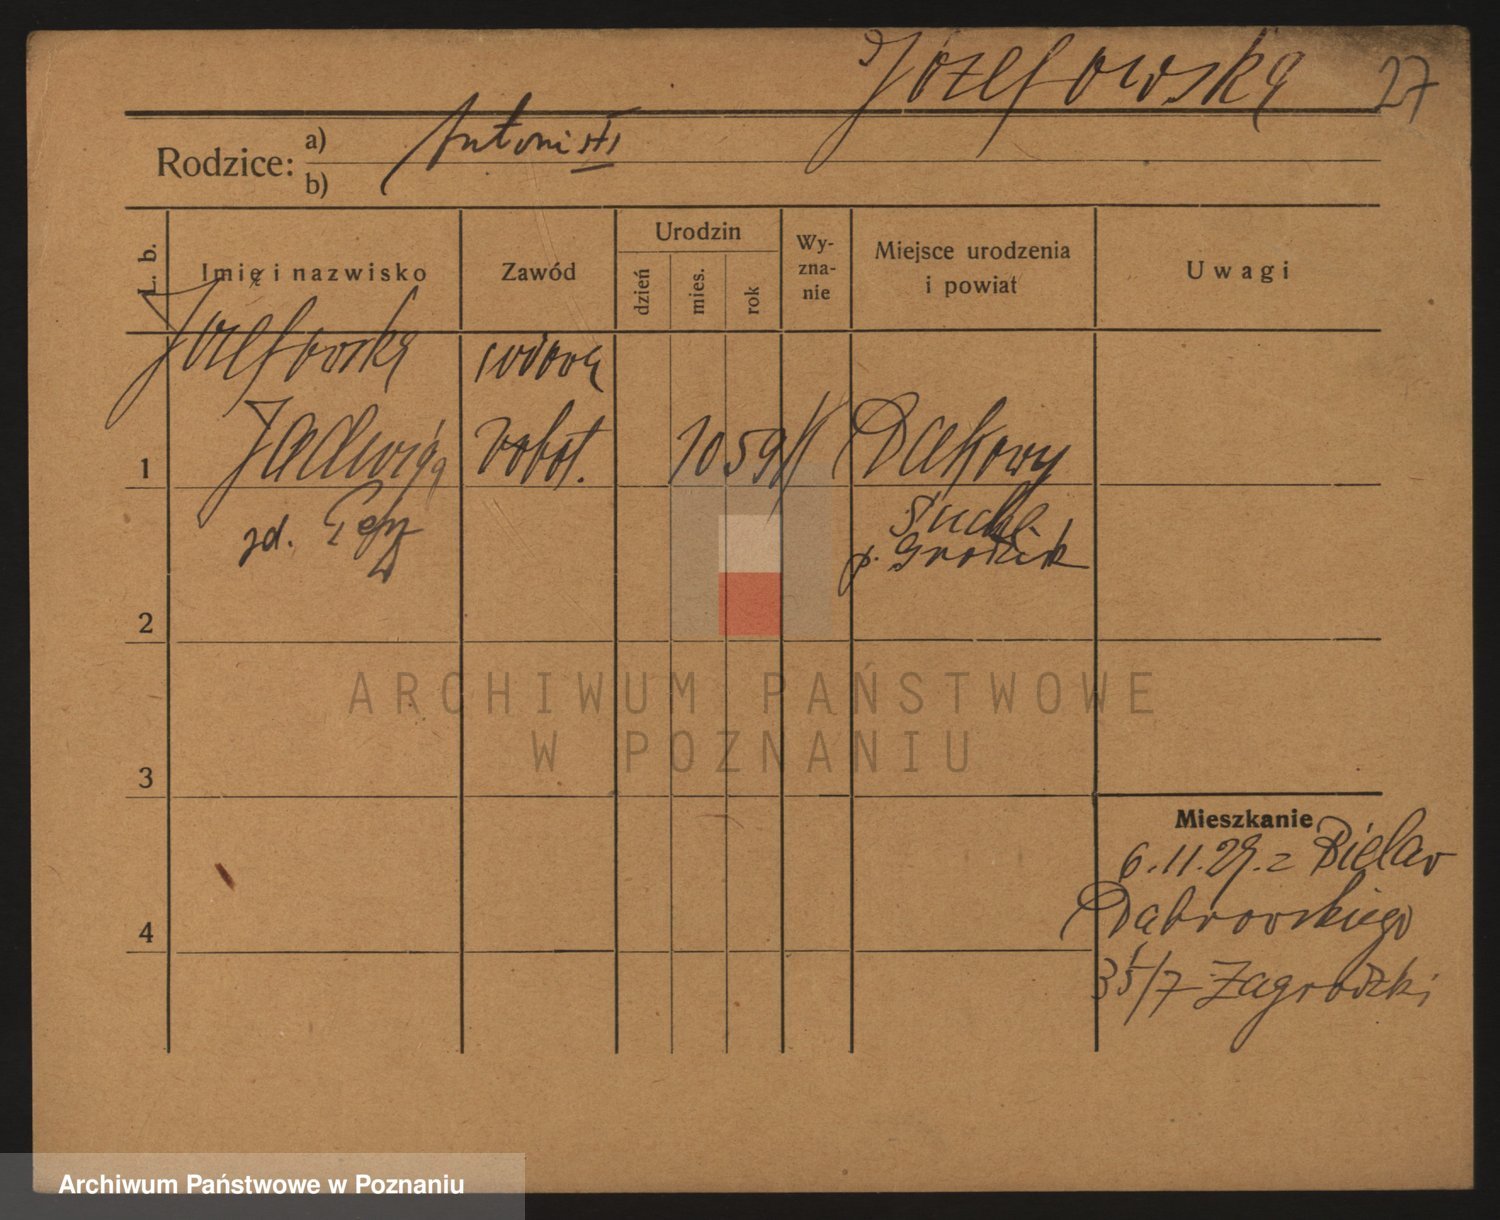 Józefowska 27
Rodzice: a) Antoni
b)
L. b.
Imię i nazwisko
Zawód
Urodzin
dzień
mies.
rok
Wy-
zna-
nie
Miejsce urodzenia
i powiat
Uwagi
Józefowska wdowa
1 Jadwiga robot. 10 59 k Dakowy
zd. Suche
p. Grodzisk
2
3
4
ARCHIWUM PAŃSTWOWE
W POZNANIU
Mieszkanie
6.11.29. z Bielav
Dabrowskiego
35/7 Zagrodzki
Archiwum Państwowe w Poznaniu